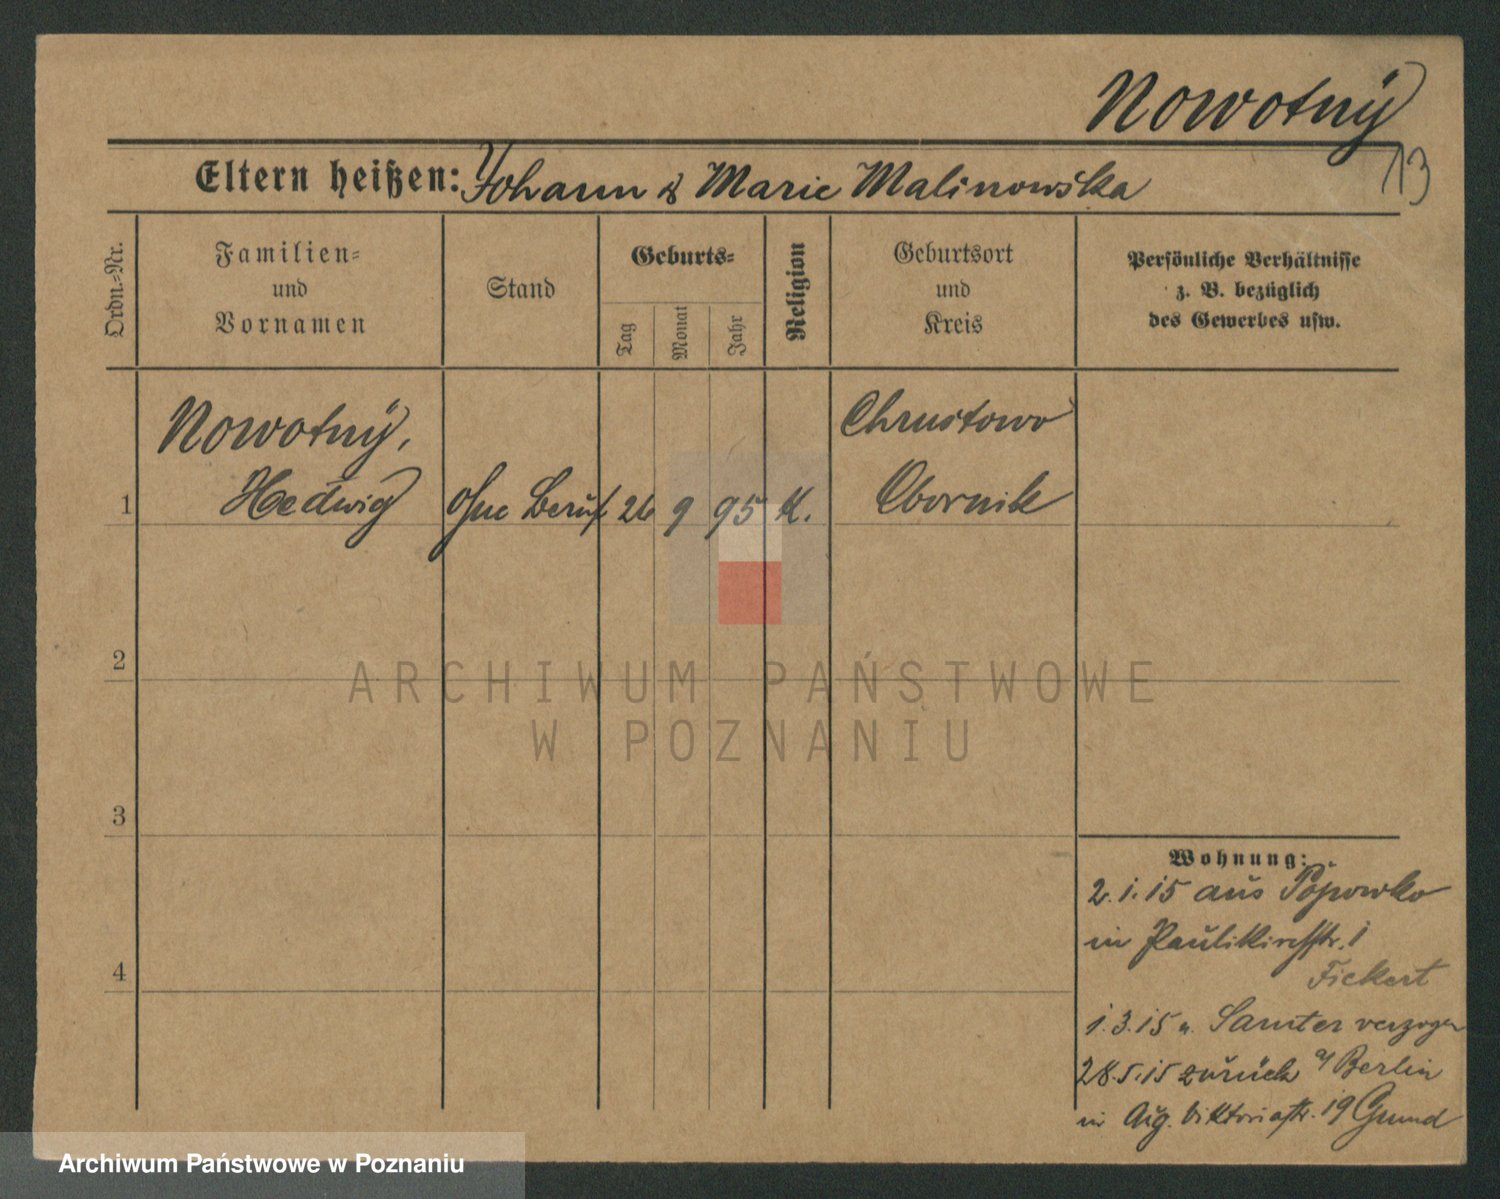 Nowotnÿ
13
Eltern heißen: Johann & Marie Malinowska
Ordn.-Nr.
Familien-
und
Vornamen
Stand
Geburts-
Tag
Monat
Jahr
Religion
Geburtsort
und
Kreis
Persönliche Verhältnisse
z. B. bezüglich
des Gewerbes usw.
Nowotnÿ, Chrustowo
1 Hedwig ohne Beruf 26 9 95 K. Obornik
2
3
4
Wohnung:
2.1.15 aus Popowko
in Paulikirchstr. 1
Fickert
1.3.15 n. Samter verzogen
28.5.15 zurück a/ Berlin
in Aug. Viktoriastr. 19 Grund
ARCHIWUM PAŃSTWOWE
W POZNANIU
Archiwum Państwowe w Poznaniu